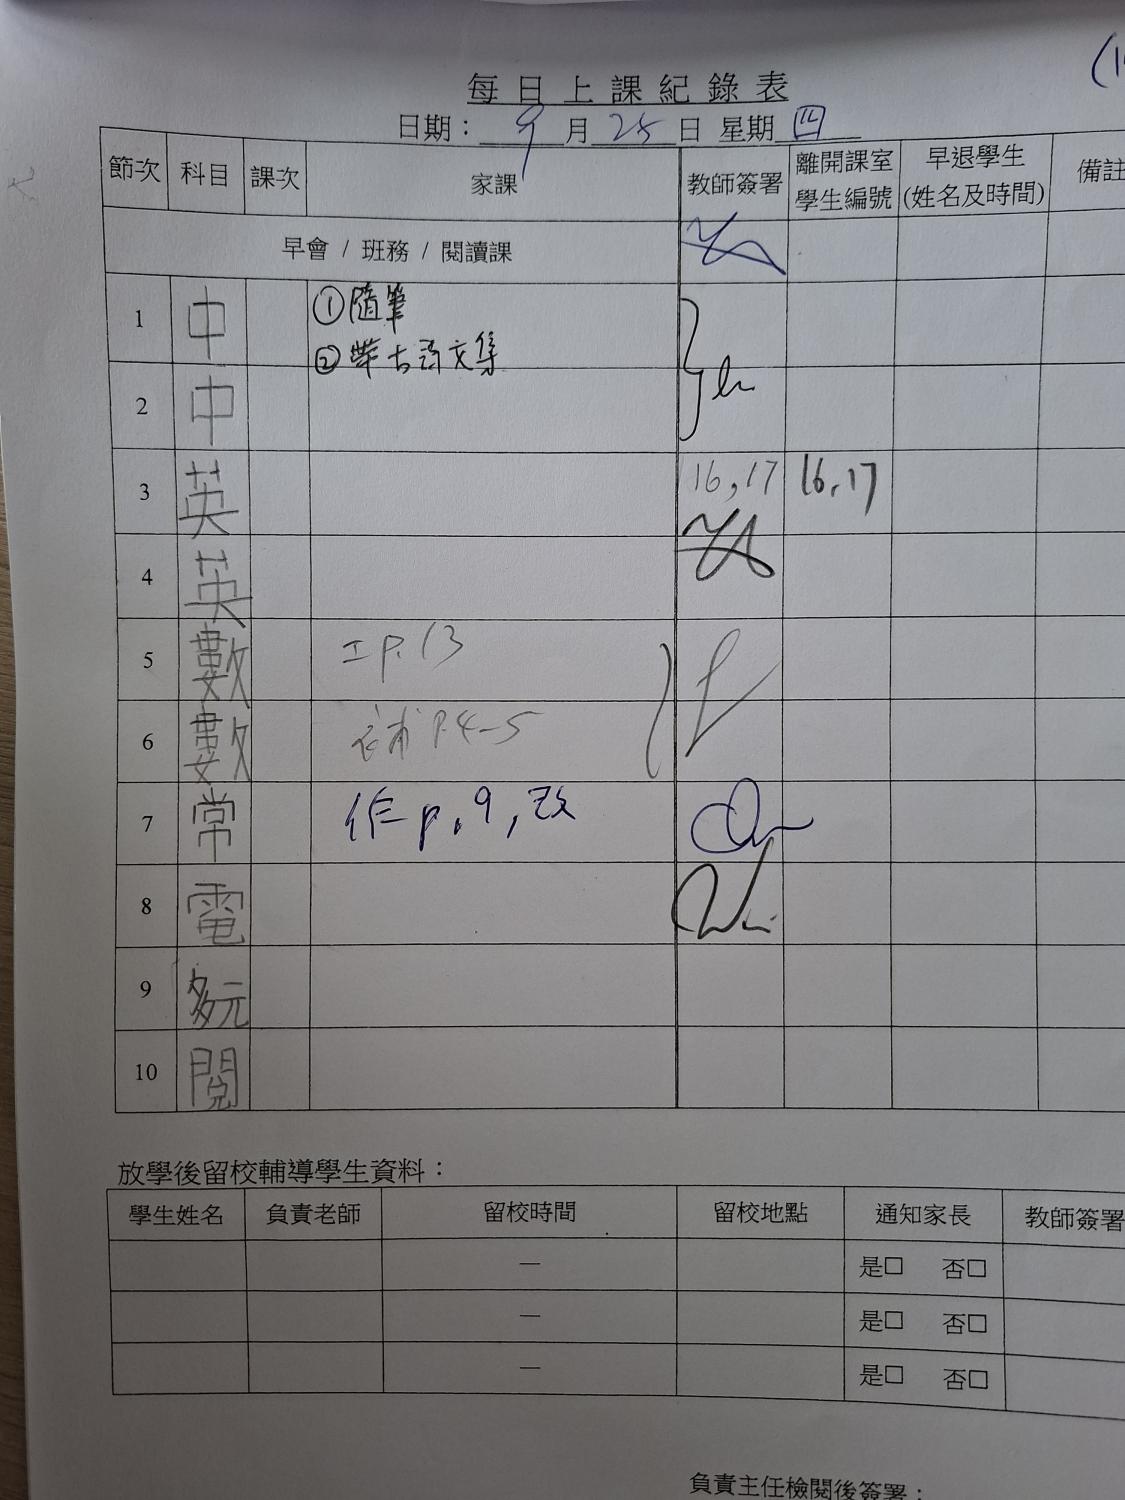 每日上課紀錄表
日期： 9 月 25 日 星期 四
節次 科目 課次 家課 教師簽署 離開課室學生編號 早退學生(姓名及時間) 備註
早會 / 班務 / 閱讀課
1 中 ①隨筆
② 文集
2 中
3 英 16,17 16,17
4 英
5 數 工 p.13
6 數 補 P.4-5
7 常 作 p.9,改
8 電
9 多元
10 閱
放學後留校輔導學生資料：
學生姓名 負責老師 留校時間 留校地點 通知家長 教師簽署
— 是□ 否□
— 是□ 否□
— 是□ 否□
負責主任檢閱後簽署：